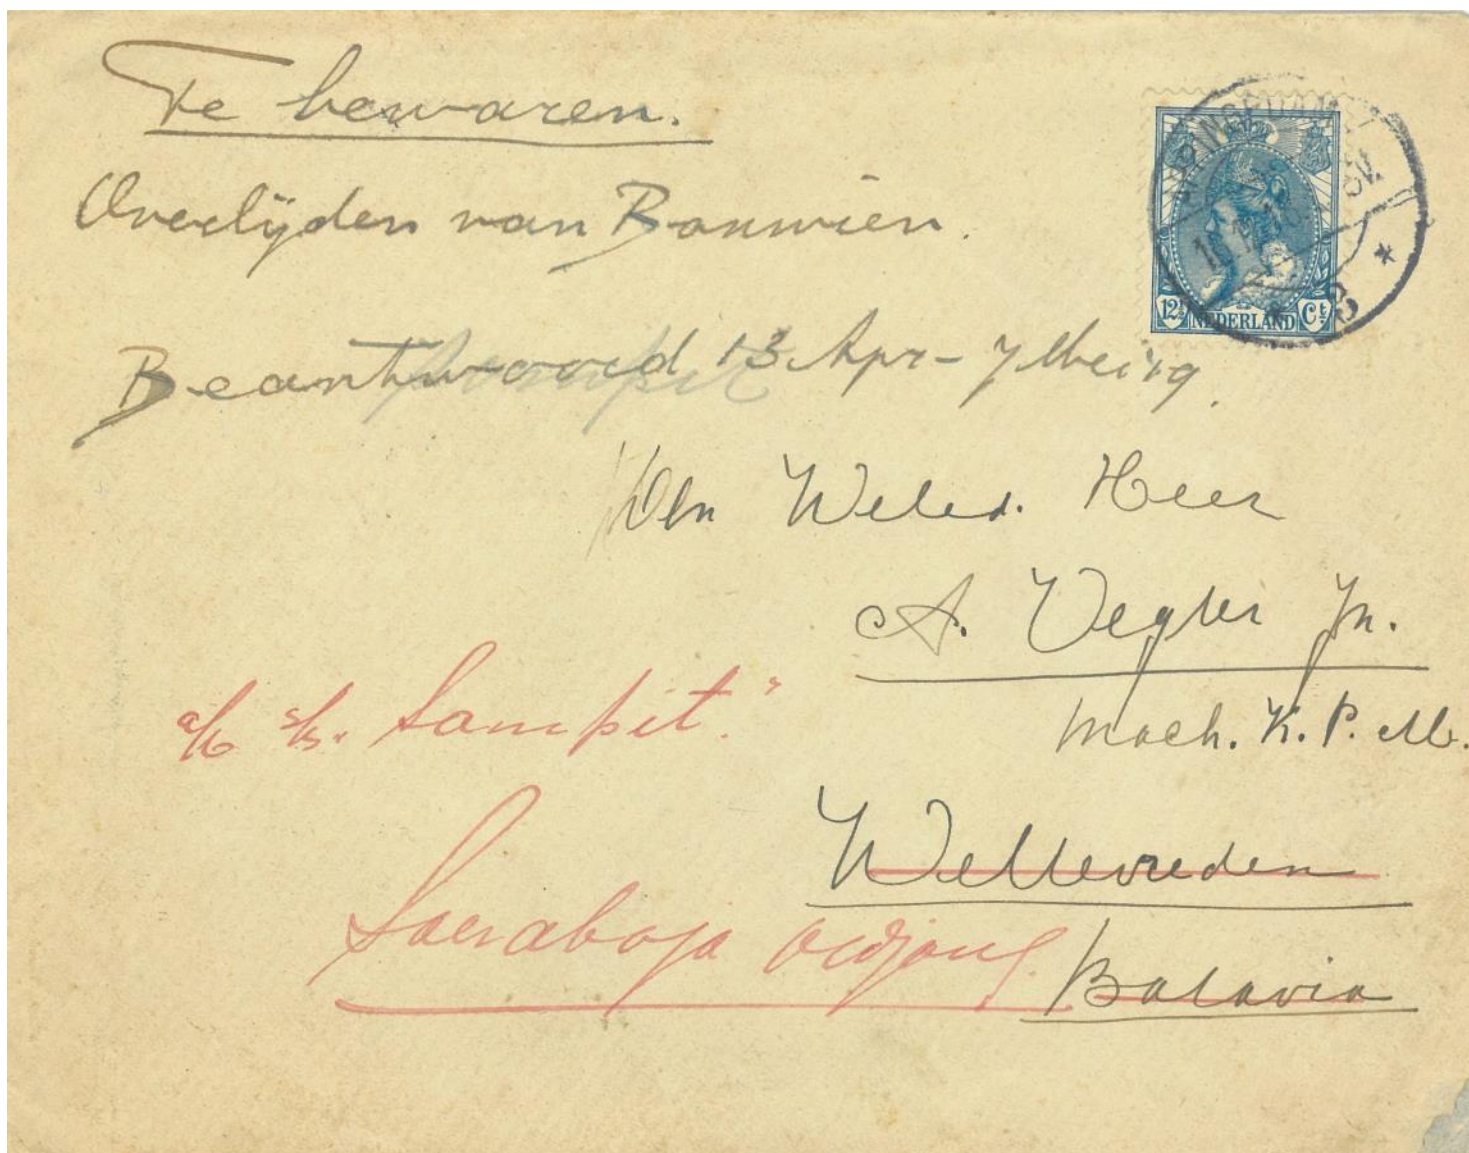 Te bewaren.
Overlijden van Bouwien.
Beantwoord 13 Apr - 7 Mei '19.
12½ NEDERLAND Ct
Den Weled. Heer
A. Vegter Jr.
a/b s/s. Sampit."
Mach. K. P. M.
Weltevreden
Soerabaja Oedjong.
Batavia